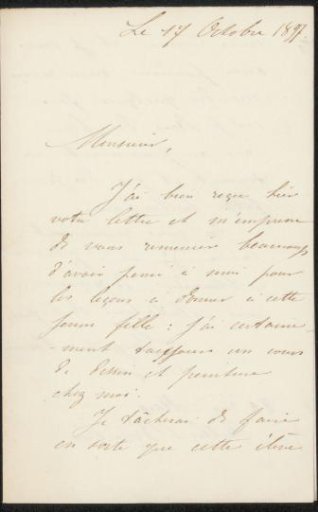 Le 17 Octobre 1891.
Monsieur,
J'ai bien reçue hier
votre lettre et m'empresse
de vous remercier beaucoup
d'avoir pensé à moi pour
les leçons à donner à cette
jeune fille : j'ai certaine-
-ment toujours un cours
de dessin et peinture
chez moi.
Je tâcherai de faire
en sorte que cette élève